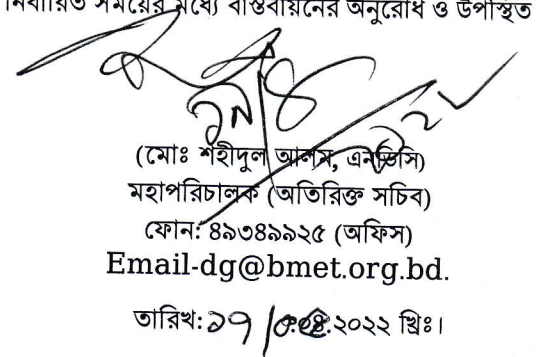 নির্ধারিত সময়ের মধ্যে বাস্তবায়নের অনুরোধ ও উপস্থিত
(মোঃ শহীদুল আলম, এনডিসি)
মহাপরিচালক (অতিরিক্ত সচিব)
ফোন: ৪৯৩৪৯৯২৫ (অফিস)
Email-dg@bmet.org.bd.
তারিখ: ১৭/ .২০২২ খ্রিঃ।